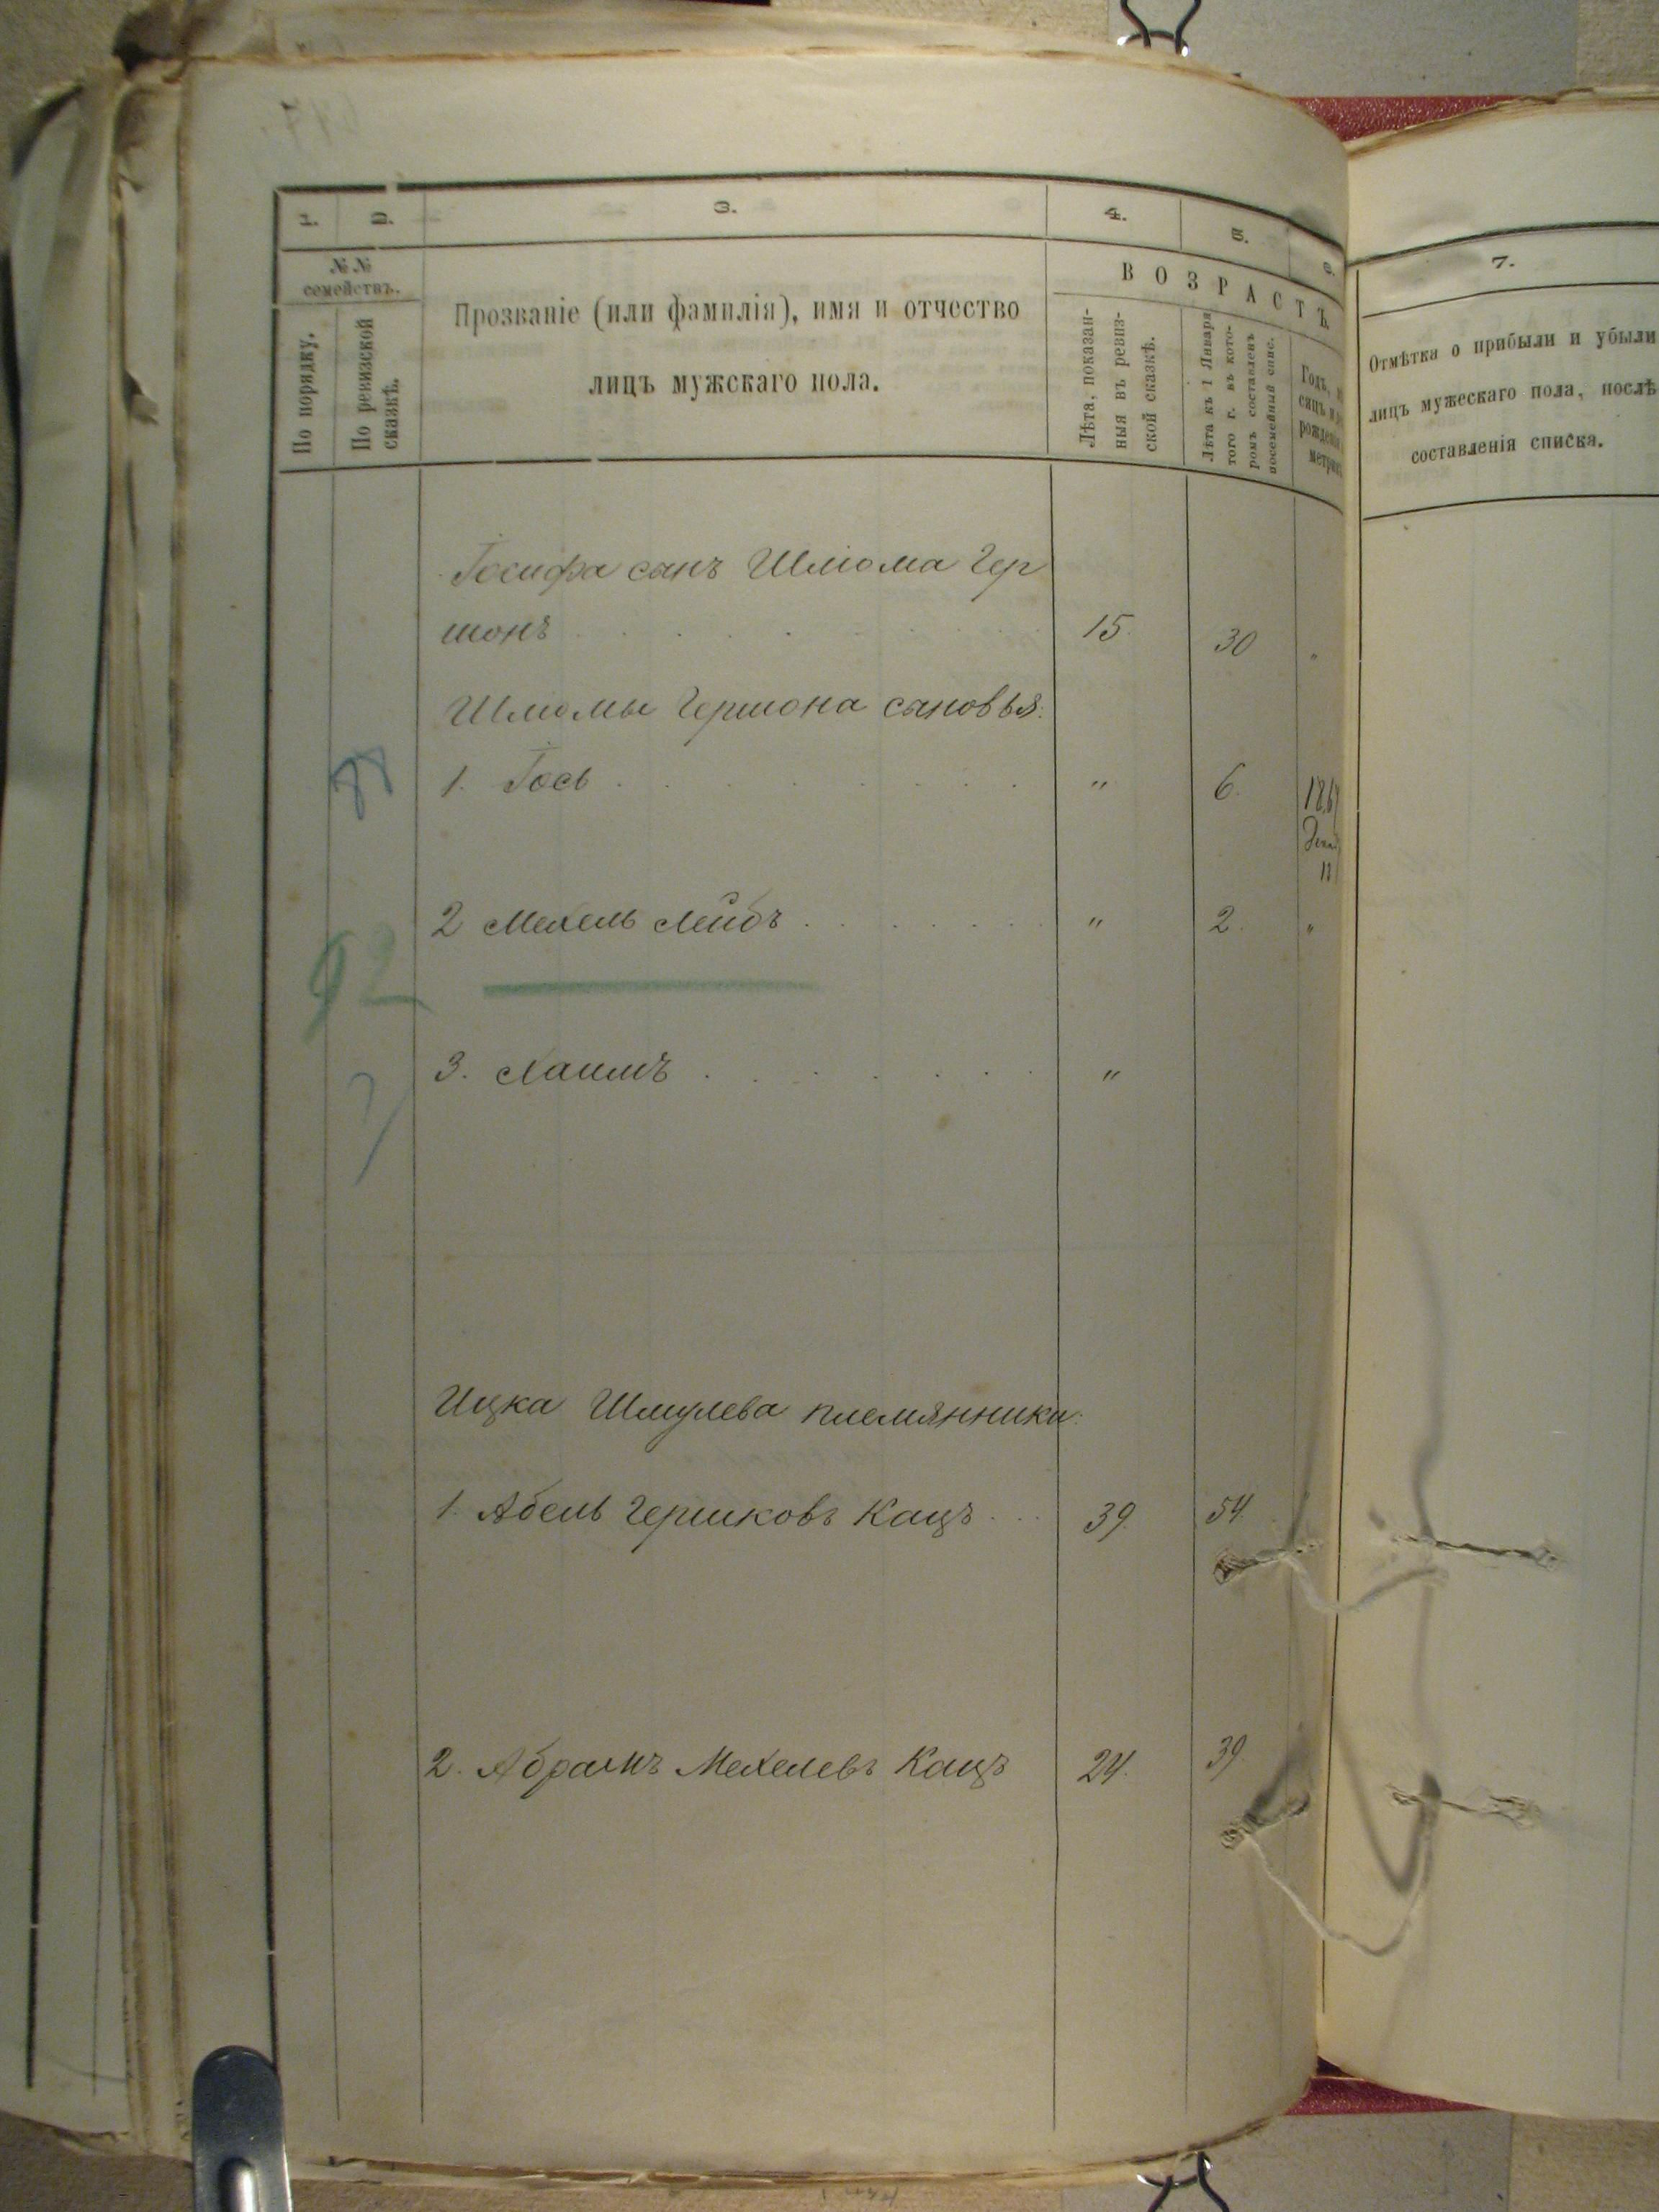 1.
2.
3.
4.
5.
6.
7.
№ №
семействъ.
По порядку.
По ревизской
сказкѣ.
Прозваніе (или фамилія), имя и отчество
лицъ мужскаго пола.
ВОЗРАСТЪ.
Лѣта, показан-
ныя въ ревиз-
ской сказкѣ.
Лѣта къ 1 Января
того г. въ кото-
ромъ составленъ
посемейный спис.
Годъ,
рожденія
Отмѣтка о прибыли и убыли
лицъ мужескаго пола, послѣ
составленія списка.
Іосифа сынъ Шліома Гер
шонъ 15. 30 "
Шліомы Гершона сыновья:
1. Іось " 6.
2 Мехель Лейбъ " 2. "
92
3. Хаимъ "
Ицка Шмулева племянники:
1. Абель Гершковъ Кацъ 39. 54.
2. Абрамъ Мехелевъ Кацъ 24. 39.